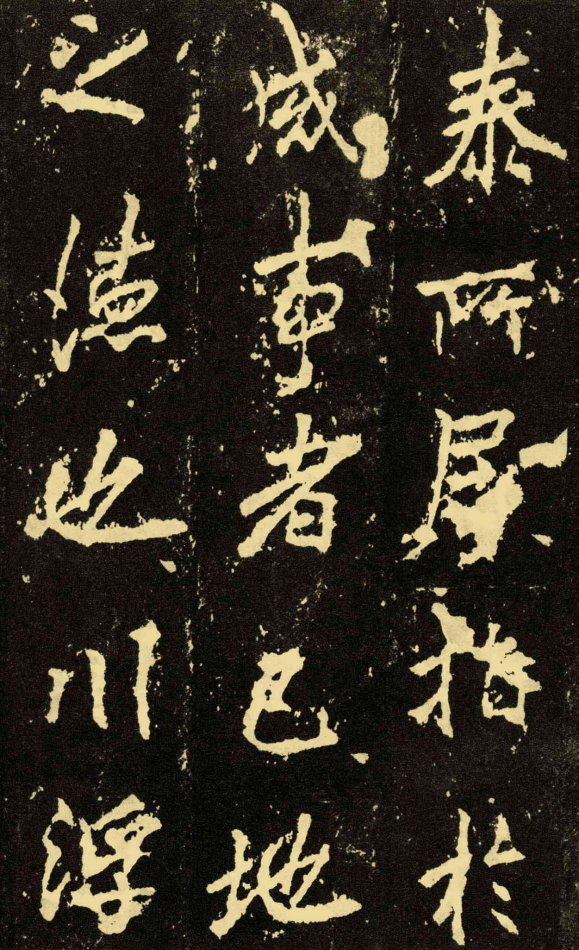 泰所指於
成事者已地
之德也川浮